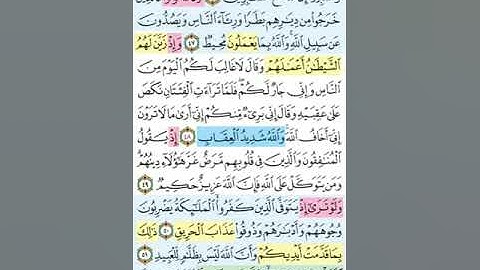 خَرَجُوا۟ مِن دِيَـٰرِهِم بَطَرًا وَرِئَآءَ ٱلنَّاسِ وَيَصُدُّونَ
عَن سَبِيلِ ٱللَّهِ ۚ وَٱللَّهُ بِمَا يَعْمَلُونَ مُحِيطٌ ٤٧ وَإِذْ زَيَّنَ لَهُمُ
ٱلشَّيْطَـٰنُ أَعْمَـٰلَهُمْ وَقَالَ لَا غَالِبَ لَكُمُ ٱلْيَوْمَ مِنَ
ٱلنَّاسِ وَإِنِّى جَارٌ لَّكُمْ ۖ فَلَمَّا تَرَآءَتِ ٱلْفِئَتَانِ نَكَصَ
عَلَىٰ عَقِبَيْهِ وَقَالَ إِنِّى بَرِىٓءٌ مِّنكُمْ إِنِّىٓ أَرَىٰ مَا لَا تَرَوْنَ
إِنِّىٓ أَخَافُ ٱللَّهَ ۚ وَٱللَّهُ شَدِيدُ ٱلْعِقَابِ ٤٨ إِذْ يَقُولُ
ٱلْمُنَـٰفِقُونَ وَٱلَّذِينَ فِى قُلُوبِهِم مَّرَضٌ غَرَّ هَـٰٓؤُلَآءِ دِينُهُمْ ۗ
وَمَن يَتَوَكَّلْ عَلَى ٱللَّهِ فَإِنَّ ٱللَّهَ عَزِيزٌ حَكِيمٌ ٤٩
وَلَوْ تَرَىٰٓ إِذْ يَتَوَفَّى ٱلَّذِينَ كَفَرُوا۟ ۙ ٱلْمَلَـٰٓئِكَةُ يَضْرِبُونَ
وُجُوهَهُمْ وَأَدْبَـٰرَهُمْ وَذُوقُوا۟ عَذَابَ ٱلْحَرِيقِ ٥٠ ذَٰلِكَ
بِمَا قَدَّمَتْ أَيْدِيكُمْ وَأَنَّ ٱللَّهَ لَيْسَ بِظَلَّـٰمٍ لِّلْعَبِيدِ ٥١